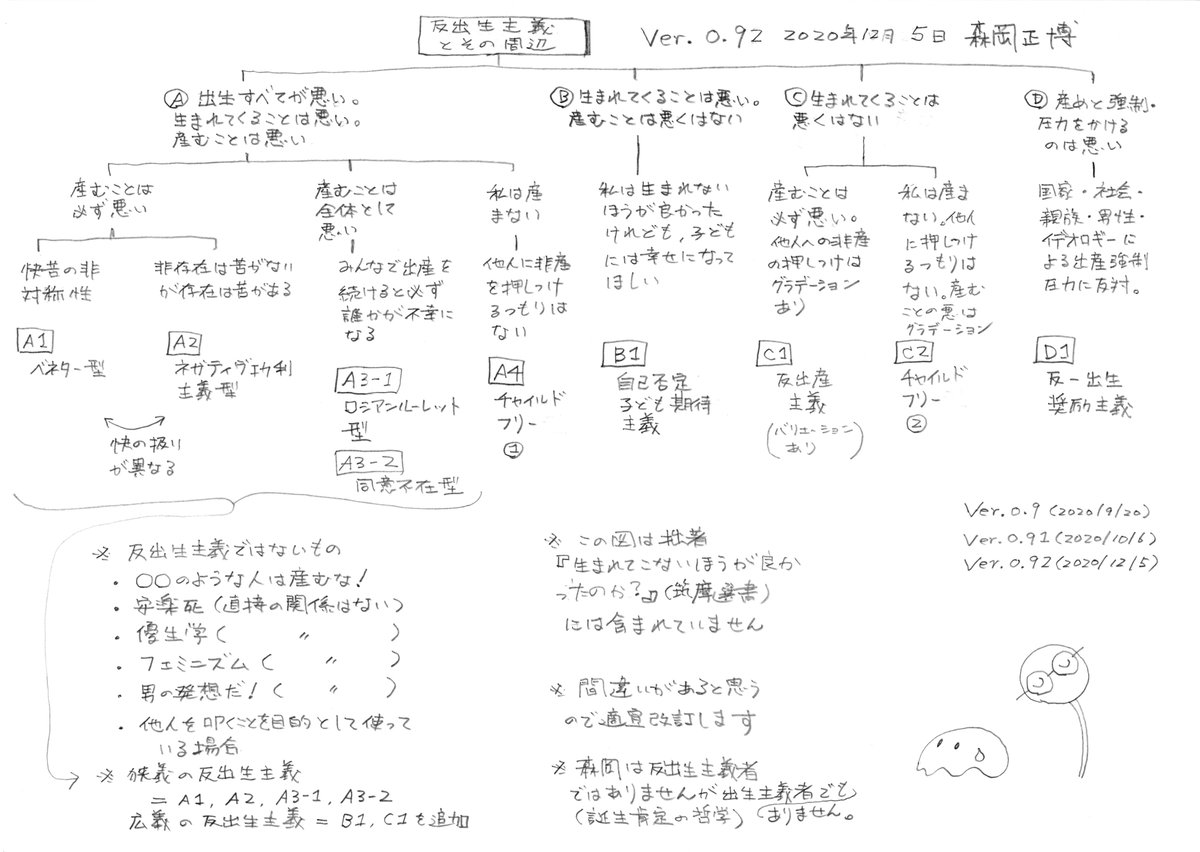 反出生主義
とその周辺
Ver. 0.92 2020年12月5日 森岡正博
Ⓐ 出生すべてが悪い。
生まれてくることは悪い。
産むことは悪い
Ⓑ 生まれてくることは悪い。
産むことは悪くはない
Ⓒ 生まれてくることは
悪くはない
Ⓓ 産めと強制・
圧力をかける
のは悪い
産むことは
必ず悪い
産むことは
全体として
悪い
私は産
まない
私は生まれない
ほうが良かった
けれども、子ども
には幸せになって
ほしい
産むことは
必ず悪い。
他人への非産
の押しつけは
グラデーション
あり
私は産ま
ない。他人
に押しつけ
るつもりは
ない。産む
ことの悪は
グラデーション
国家・社会・
親族・男性・
イデオロギーに
よる出産強制
圧力に反対。
快苦の非
対称性
非存在は苦がない
が存在は苦がある
みんなで出産を
続けると必ず
誰かが不幸に
なる
他人に非産
を押しつけ
るつもりは
ない
A1
ベネター型
A2
ネガティヴ功利
主義型
快の扱い
が異なる
A3-1
ロシアンルーレット
型
A3-2
同意不在型
A4
チャイルド
フリー
①
B1
自己否定
子ども期待
主義
C1
反出産
主義
(バリエーション
あり)
C2
チャイルド
フリー
②
D1
反-出生
奨励主義
※ 反出生主義ではないもの
・〇〇のような人は産むな!
・安楽死(直接の関係はない)
・優生学( 〃 )
・フェミニズム( 〃 )
・男の発想だ!( 〃 )
・他人を叩くことを目的として使って
いる場合
※ 狭義の反出生主義
= A1, A2, A3-1, A3-2
広義の反出生主義 = B1, C1を追加
※ この図は拙著
『生まれてこないほうが良か
ったのか?』(筑摩選書)
には含まれていません
※ 間違いがあると思う
ので適宜改訂します
※ 森岡は反出生主義者
ではありませんが出生主義者でも
(誕生肯定の哲学) ありません。
Ver. 0.9 (2020/9/20)
Ver. 0.91 (2020/10/6)
Ver. 0.92 (2020/12/5)